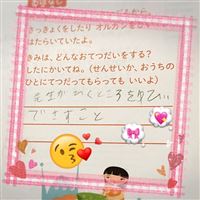 さっきょくをしたり オルガンをひ
はたらいていたよ。
きみは、どんなおてつだいをする?
したにかいてね。(せんせいか、おうちの
ひとにてつだってもらっても いいよ)
先生がいくところを
でさすこと